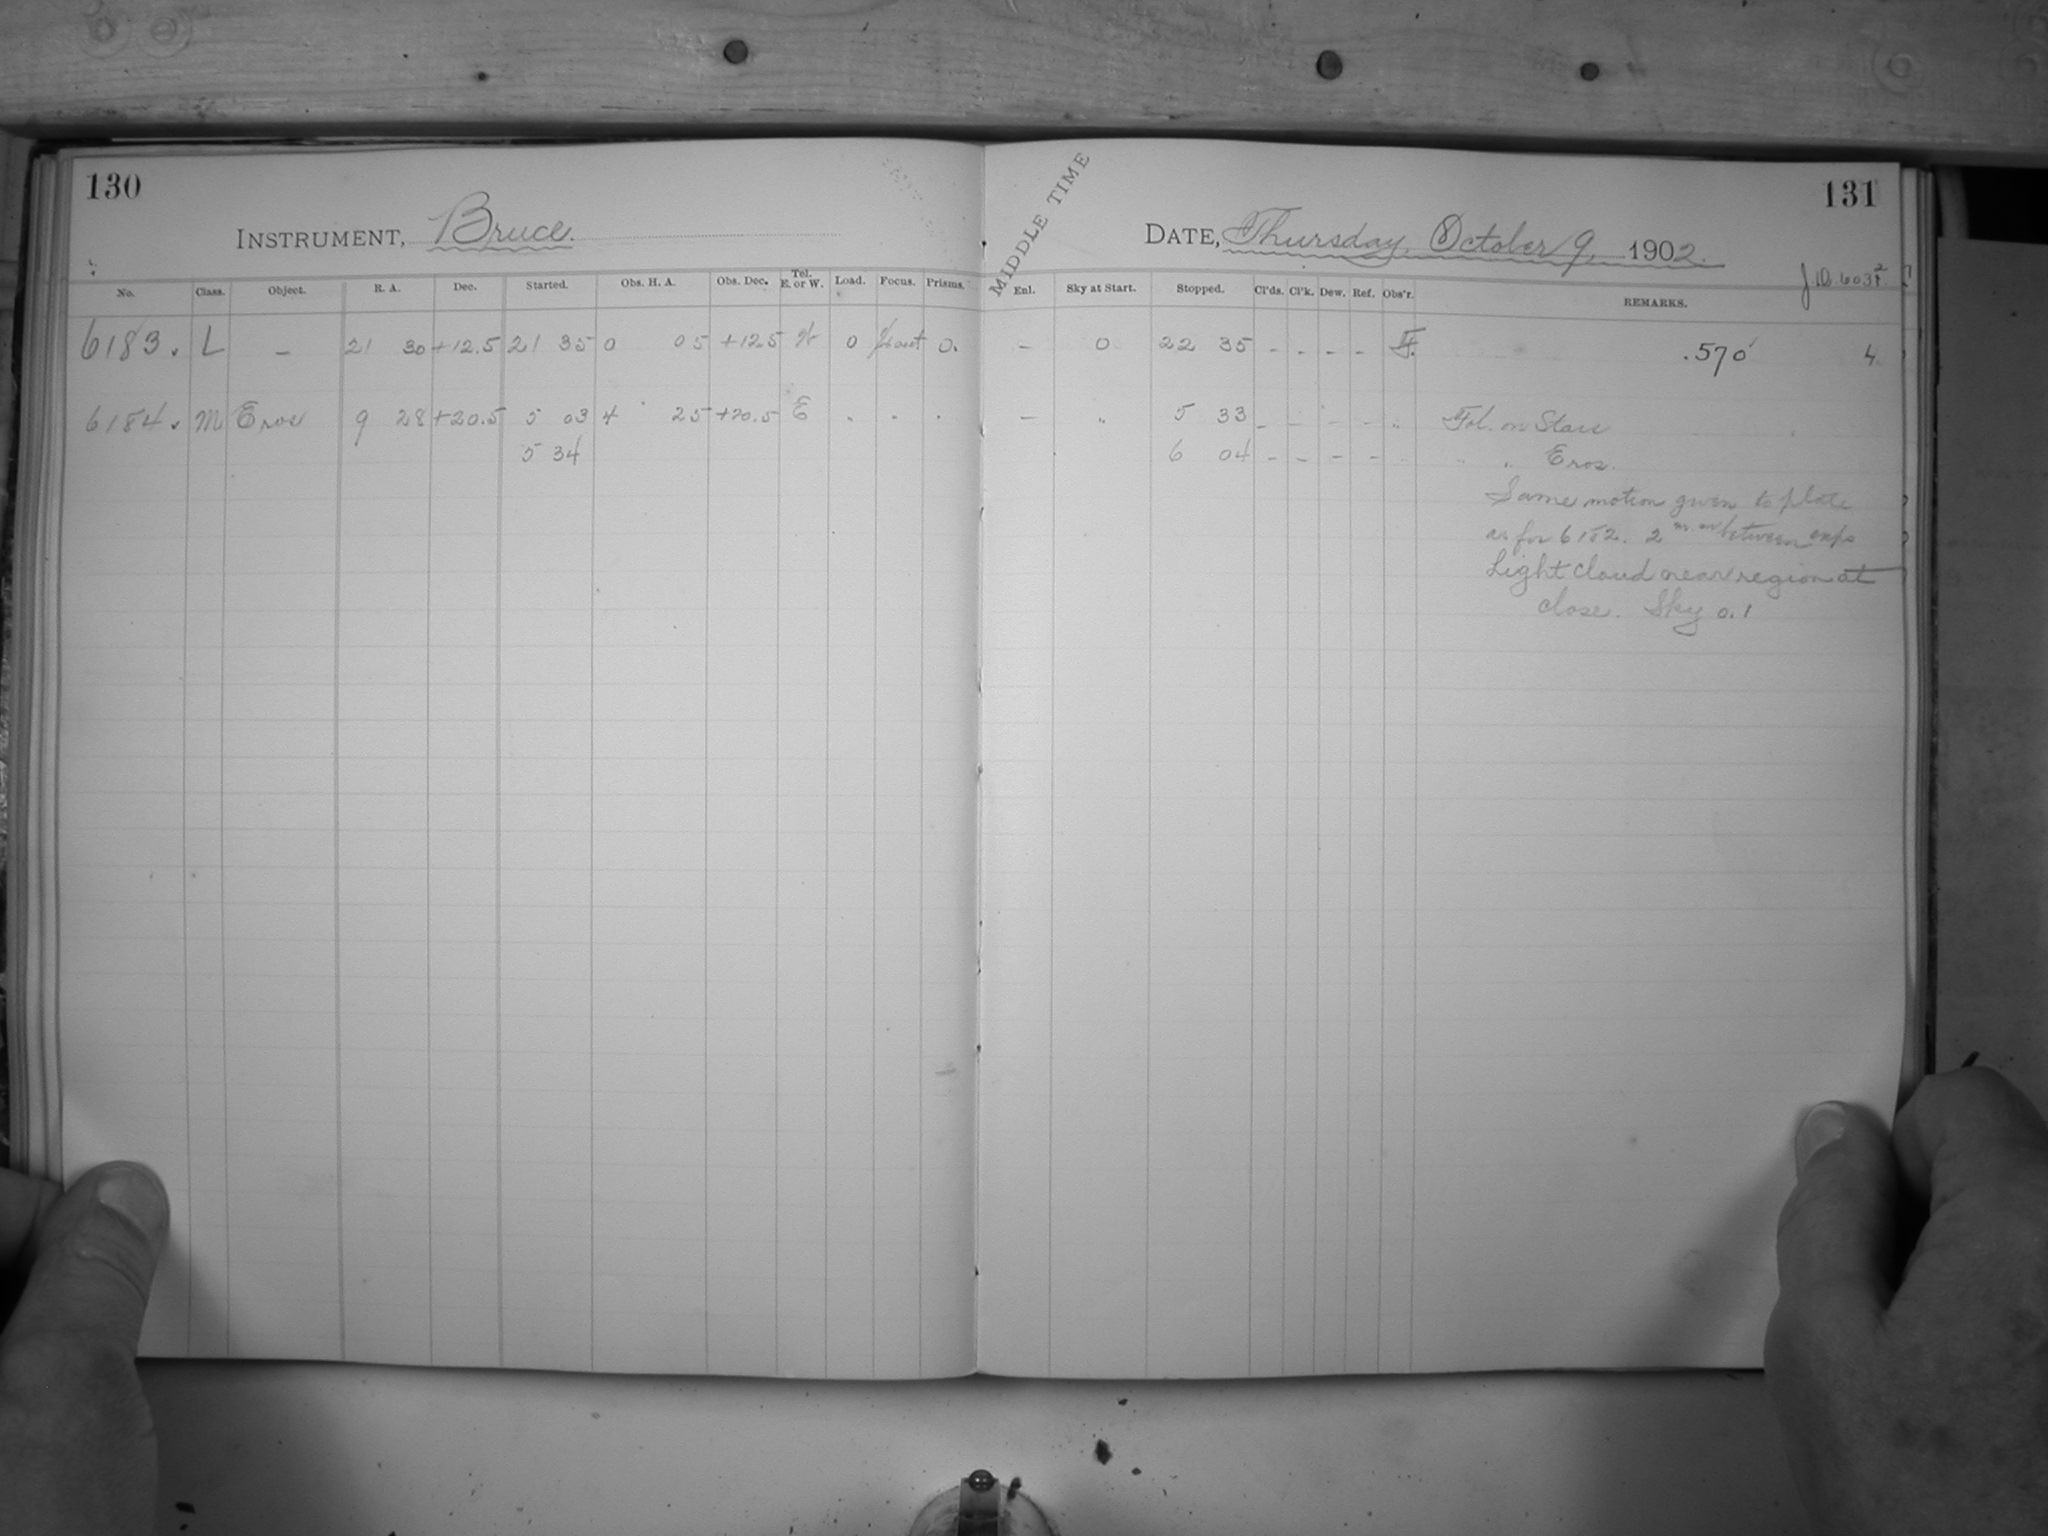 130
INSTRUMENT, Bruce.
No. Class. Object. R. A. Dec. Started. Obs. H. A. Obs. Dec. Tel. E. or W. Load. Focus. Prisms.
6183. L – 21 30 +12.5 21 35 0 05 +12.5 W 0 0.
6184. M Eros 9 28 +20.5 5 03 4 25 +20.5 E " " "
5 34
131
MIDDLE TIME
DATE, Thursday, October 9, 1902.
Enl. Sky at Start. Stopped. Cl'ds. Cl'k. Dew. Ref. Obs'r. REMARKS.
– 0 22 35 - - - - .570 4
– " 5 33 - - - - " Fol. on Stars
6 04 - - - - " " " Eros.
Same motion given to plate
as for 6182. 2 between exps
Light cloud near region at
close. Sky 0.1